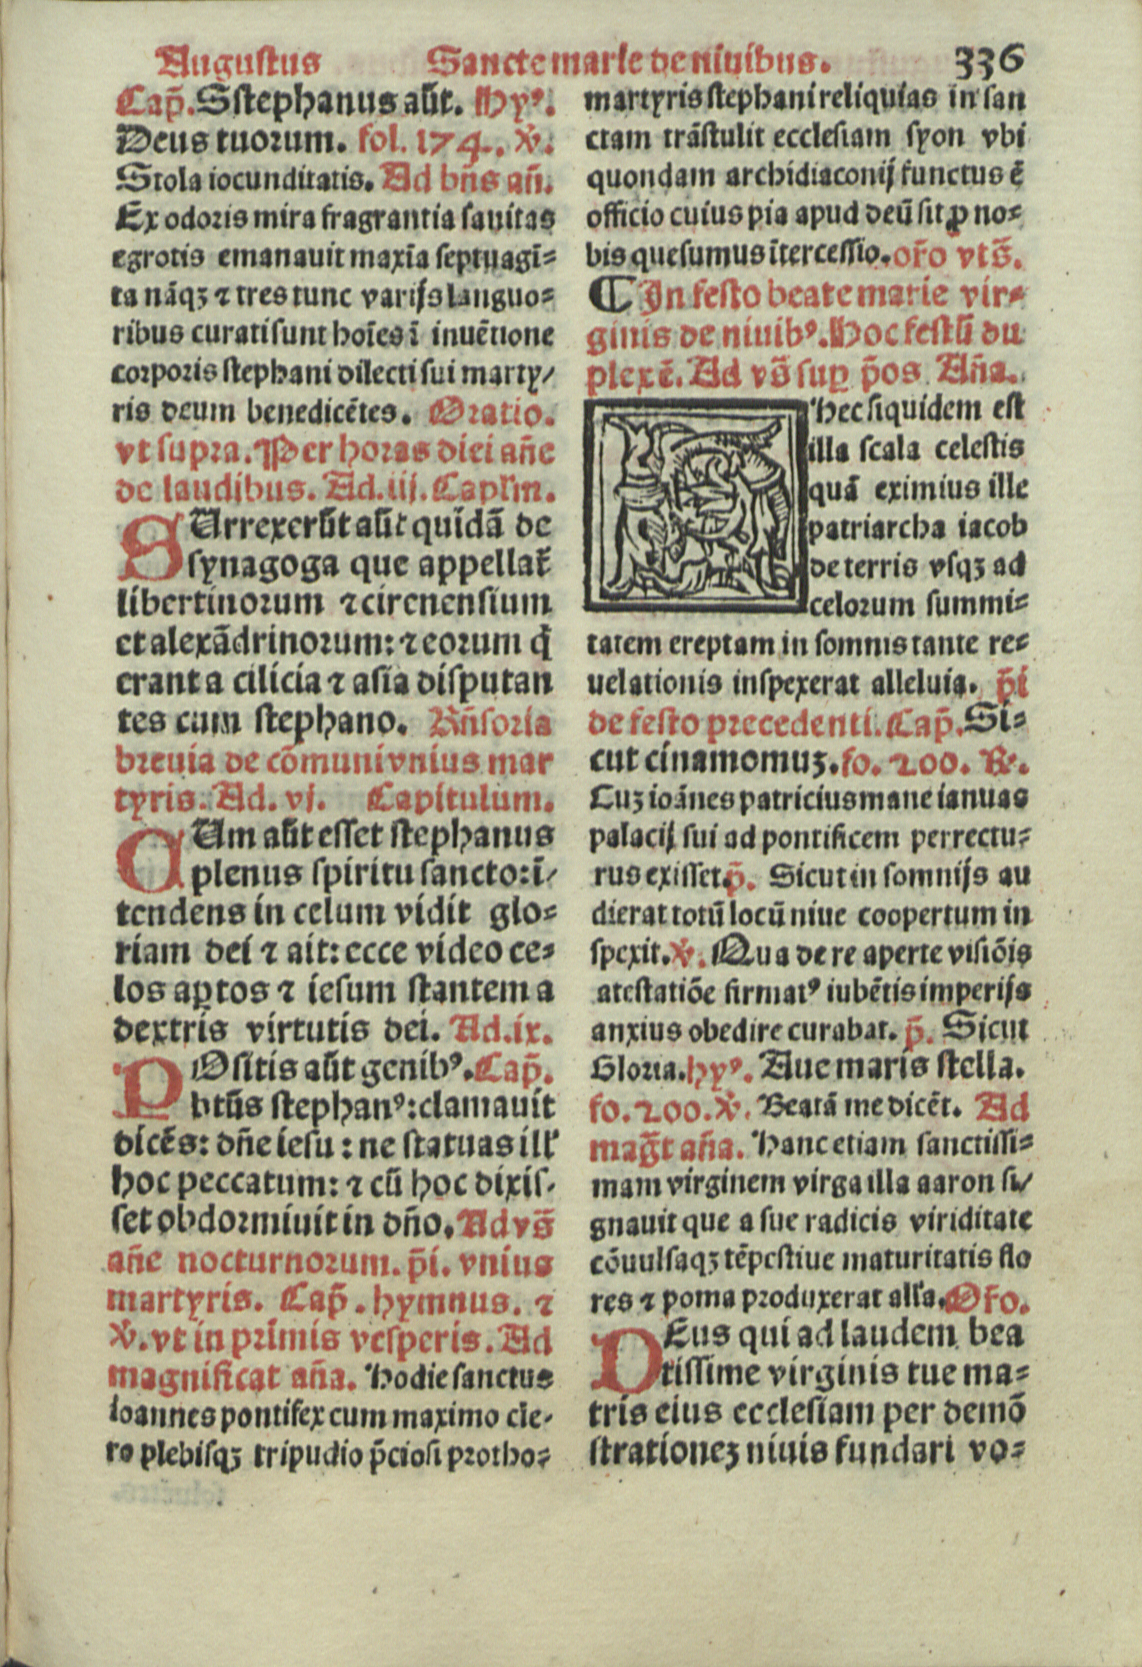 Augustus Sancte marie de niuibus. 336
Cap̃. Sstephanus aūt. Hyꝰ.
Deus tuorum. fol. 174. ℣.
Stola iocunditatis. Ad bñs añ.
Ex odoris mira fragrantia sauitas
egrotis emanauit maxīa septuagī⸗
ta nāqꝫ ⁊ tres tunc varijs languo⸗
ribus curati sunt hoīes ī inuētione
corporis stephani dilecti sui marty/
ris deum benedicētes. Oratio.
vt supra. Per horas diei añe
de laudibus. Ad. iij. Capl'm.
SUrrexerūt aūt quīdā de
synagoga que appellat᷑
libertinorum ⁊ cirenensium
et alexādrinorum: ⁊ eorum q̇
erant a cilicia ⁊ asia disputan
tes cum stephano. Rñsoria
breuia de cōmuni vnius mar
tyris. Ad. vj. Capitulum.
CUm aūt esset stephanus
plenus spiritu sancto: ī/
tendens in celum vidit glo⸗
riam dei ⁊ ait: ecce video ce⸗
los aꝑtos ⁊ iesum stantem a
dextris virtutis dei. Ad. ix.
POsitis aūt genibꝰ. Cap̃.
btūs stephanꝰ: clamauit
dicēs: dñe iesu: ne statuas ill'
hoc peccatum: ⁊ cū hoc dixis⸗
set obdormiuit in dño. Ad vs̃
añe nocturnorum. p̃i. vnius
martyris. Cap̃. hymnus. ⁊
℣. vt in primis vesperis. Ad
magnificat aña. Hodie sanctus
ioannes pontifex cum maximo cle⸗
ro plebisqꝫ tripudio p̃ciosi protho⸗
martyris stephani reliquias in san
ctam trāstulit ecclesiam syon vbi
quondam archidiaconij functus ē
officio cuius pia apud deū sit ꝓ no⸗
bis quesumus ītercessio. orõ vts̃.
¶ In festo beate marie vir⸗
ginis de niuibꝰ. Hoc festū du
plex ē. Ad vs̃ suꝑ p̃os Aña.
Hec siquidem est
illa scala celestis
quā eximius ille
patriarcha iacob
de terris vsqꝫ ad
celorum summi⸗
tatem ereptam in somnis tante re⸗
uelationis inspexerat alleluia. p̃i
de festo precedenti. Cap̃. Si⸗
cut cinamomuꝫ. fo. 200. ℟.
Cuꝫ ioānes patricius mane ianuas
palacij sui ad pontificem perrectu⸗
rus exisset. p̃. Sicut in somnijs au
dierat totū locū niue coopertum in
spexit. ℣. Qua de re aperte visiōis
atestatiōe firmatꝰ iubētis imperijs
anxius obedire curabat. p̃. Sicut
Gloria. hyꝰ. Aue maris stella.
fo. 200. ℣. Beatā me dicēt. Ad
magt̃ aña. Hanc etiam sanctissi⸗
mam virginem virga illa aaron si/
gnauit que a sue radicis viriditate
cōuulsaqꝫ tēpestiue maturitatis flo
res ⁊ poma produxerat all'a. Orõ.
DEus qui ad laudem bea
tissime virginis tue ma⸗
tris eius ecclesiam per demō
strationeꝫ niuis fundari vo⸗